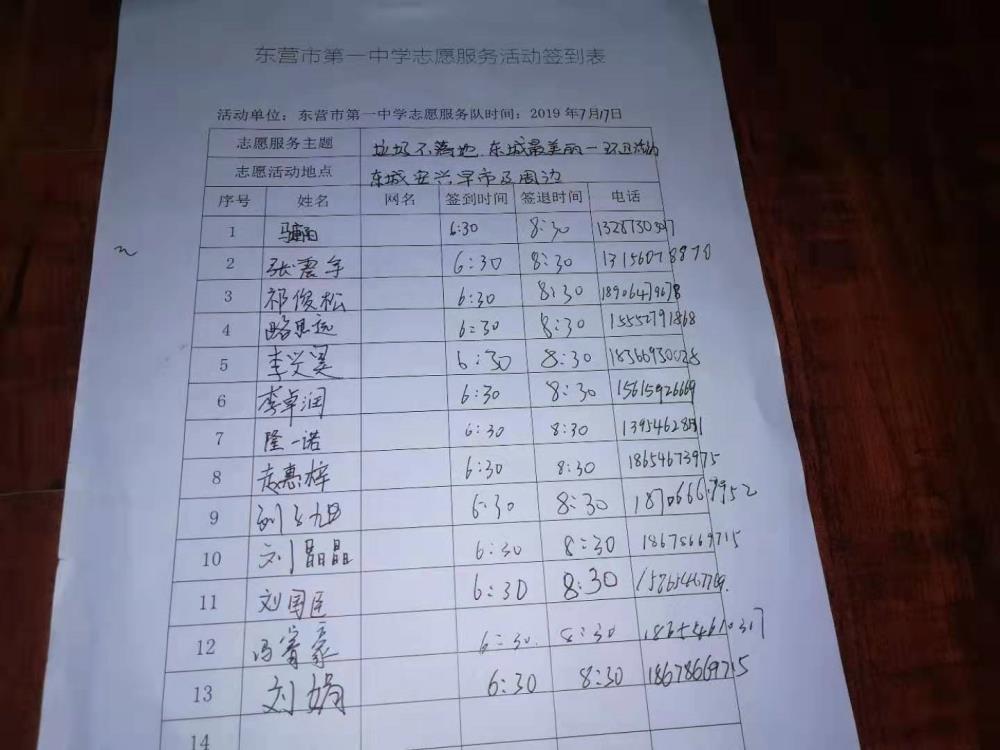 东营市第一中学志愿服务活动签到表
活动单位：东营市第一中学志愿服务队时间：2019 年7月17日
志愿服务主题 垃圾不落地.东城最美丽一环卫活动
志愿活动地点 东城安兴早市及周边
序号 姓名 网名 签到时间 签退时间 电话
1 6:30 8:30
2 张震宇 6:30 8:30 13156078870
3 祁俊松 6:30 8:30 18906479678
4 路思远 6:30 8:30 15552791868
5 李兴昊 6:30 8:30 18366930028
6 李卓润 6:30 8:30 15615926669
7 隆一诺 6:30 8:30
8 袁惠梓 6:30 8:30 18654673975
9 6:30 8:30
10 刘晶晶 6:30 8:30 18678669715
11 刘国臣 6:30 8:30
12 冯睿豪 6:30. 8:30 18654610317
13 刘娟 6:30 8:30 18678669715
14